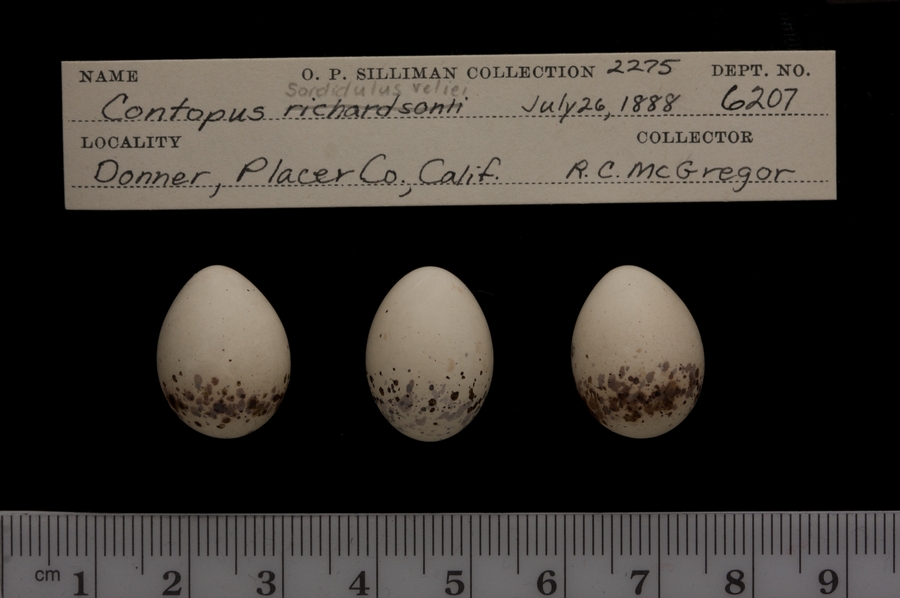 NAME O. P. SILLIMAN COLLECTION 2275 DEPT. NO.
Sordidulus veliei
Contopus richardsonii July 26, 1888 6207
LOCALITY COLLECTOR
Donner, Placer Co., Calif. R. C. McGregor
cm 1 2 3 4 5 6 7 8 9